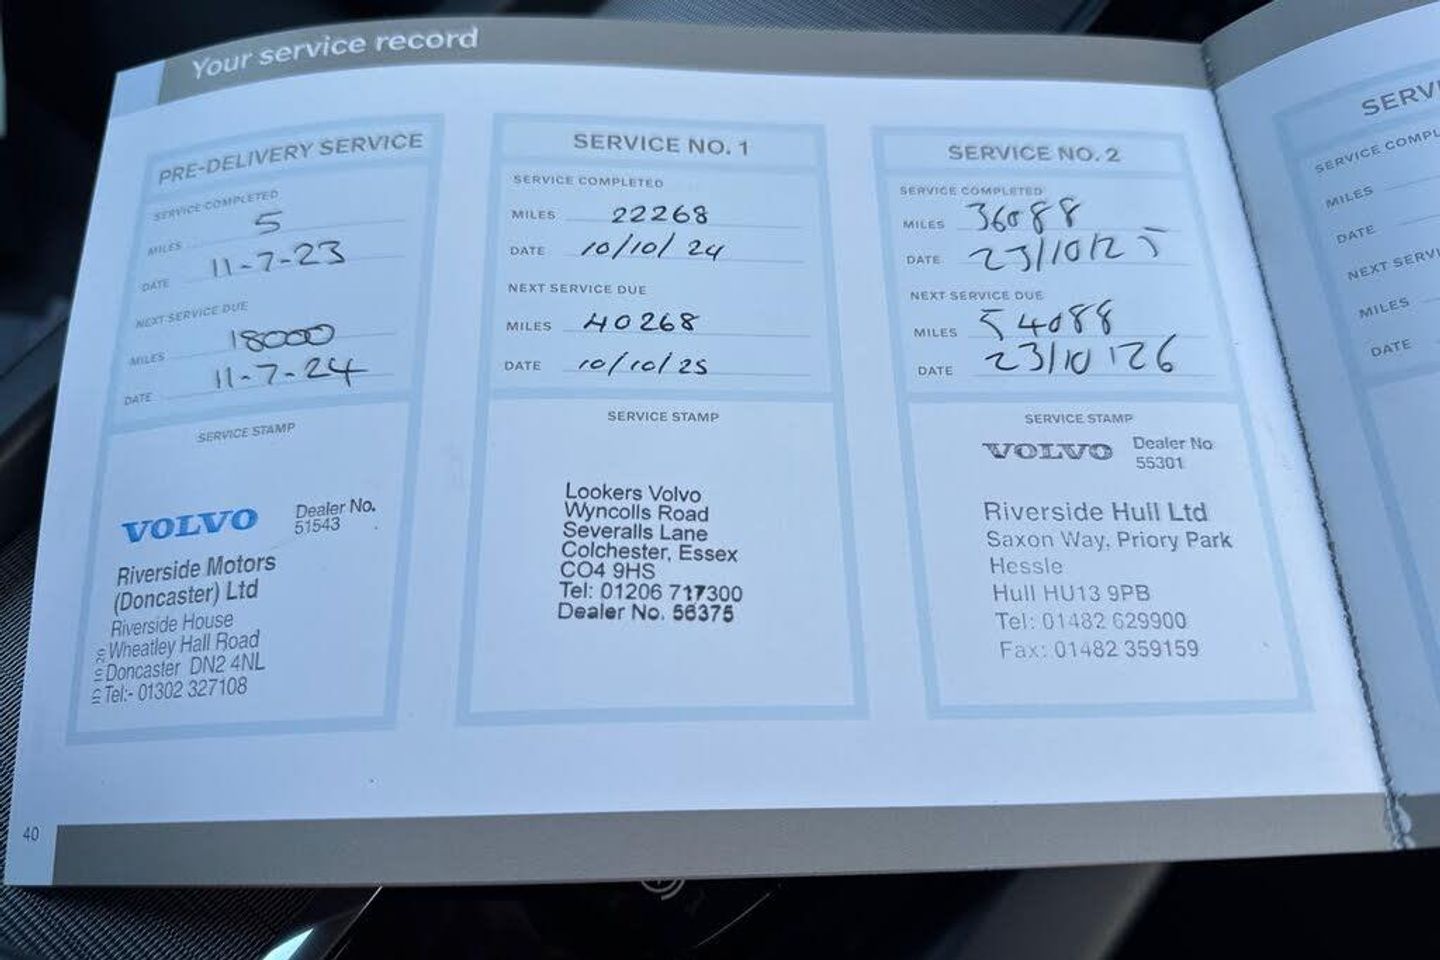 Your service record
PRE-DELIVERY SERVICE
SERVICE COMPLETED
MILES 5
DATE 11-7-23
NEXT SERVICE DUE
MILES 18000
DATE 11-7-24
SERVICE STAMP
VOLVO
Dealer No.
51543
Riverside Motors
(Doncaster) Ltd
Riverside House
Wheatley Hall Road
Doncaster DN2 4NL
Tel:- 01302 327108
SERVICE NO. 1
SERVICE COMPLETED
MILES 22268
DATE 10/10/24
NEXT SERVICE DUE
MILES 40268
DATE 10/10/25
SERVICE STAMP
Lookers Volvo
Wyncolls Road
Severalls Lane
Colchester, Essex
CO4 9HS
Tel: 01206 717300
Dealer No. 56375
SERVICE NO. 2
SERVICE COMPLETED
MILES 36088
DATE 23/10/25
NEXT SERVICE DUE
MILES 54088
DATE 23/10/26
SERVICE STAMP
VOLVO
Dealer No
55301
Riverside Hull Ltd
Saxon Way, Priory Park
Hessle
Hull HU13 9PB
Tel: 01482 629900
Fax: 01482 359159
SERVI
SERVICE COMPL
MILES
DATE
NEXT SERVI
MILES
DATE
40